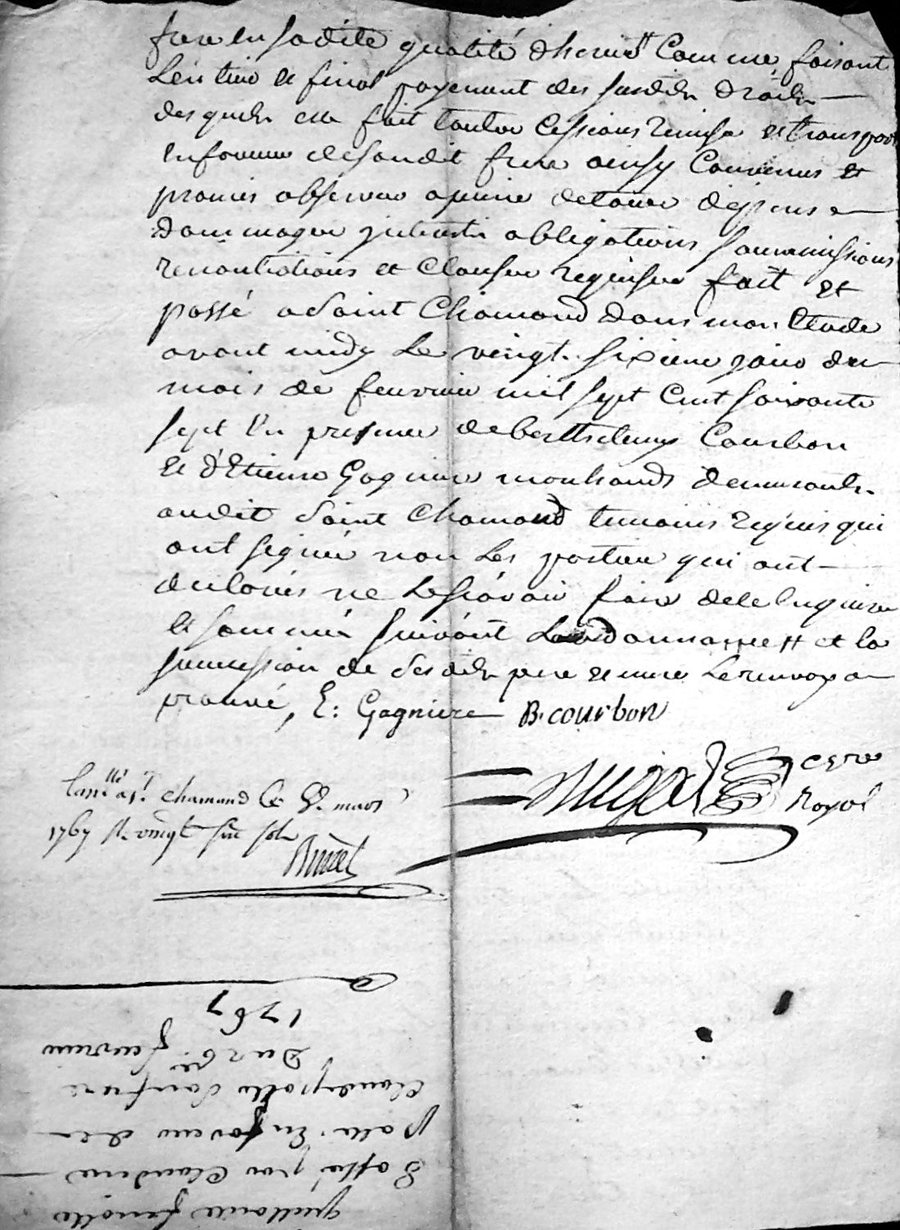 frere en sadite qualité d'herit.er Comme faisant
L'entier et final payement des susdits droits
desquels elle fait toutes Cessions remise et transport
en faveur de sondit frere ainsy Convenus et
promis observer a peine de tous dépens
dommages interets obligations soummissions
renontiations et Clauses requises fait et
passé a Saint Chamond dans mon Etude
avant midy Le vingt sixieme jour du
mois de feuvrier mil sept Cent soixante
sept En presence de berthelemy Courbon
et d'Etienne Gagniere marchands demeurants
audit Saint Chamond temoins requis qui
ont signés non Les parties qui ont
declarés ne Le sçavoir faire de ce Enquises
et sommés suivant et la
succession de sesdits pere et mere Le renvoy
prouvé, E: Gagniere B. courbon
royal
a St. chamond le mars
1767 R. vingt six sols
quittance
passé par Claudine
en faveur de
Claude son frere
Du 26 feuvrier
1767